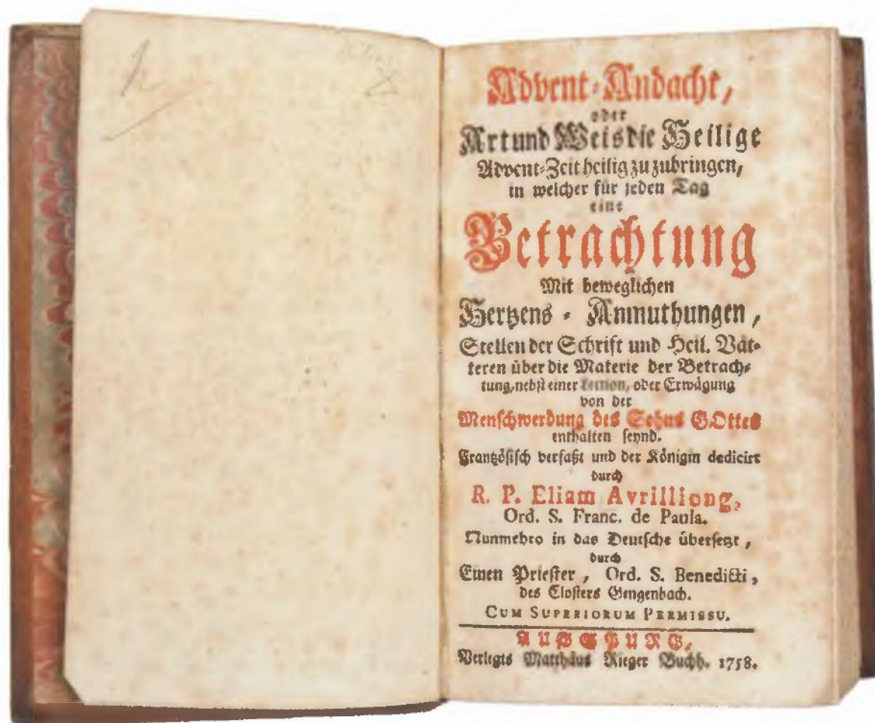 Advent-Andacht,
oder
Art und Weis die Heilige
Advent-Zeit heilig zu zubringen,
in welcher für jeden Tag
eine
Betrachtung
Mit beweglichen
Hertzens - Anmuthungen,
Stellen der Schrift und Heil. Vät-
teren über die Materie der Betrach-
tung, nebst einer Lection, oder Erwägung
von der
Menschwerdung des Sohns GOttes
enthalten seynd.
Frantzösisch verfaßt und der Königin dedicirt
durch
R. P. Eliam Avrilliong,
Ord. S. Franc. de Paula.
Nunmehro in das Deutsche übersetzt,
durch
Einen Priester, Ord. S. Benedicti,
des Closters Gengenbach.
CUM SUPERIORUM PERMISSU.
AUGSPURG,
Verlegts Matthäus Rieger Buchh. 1758.